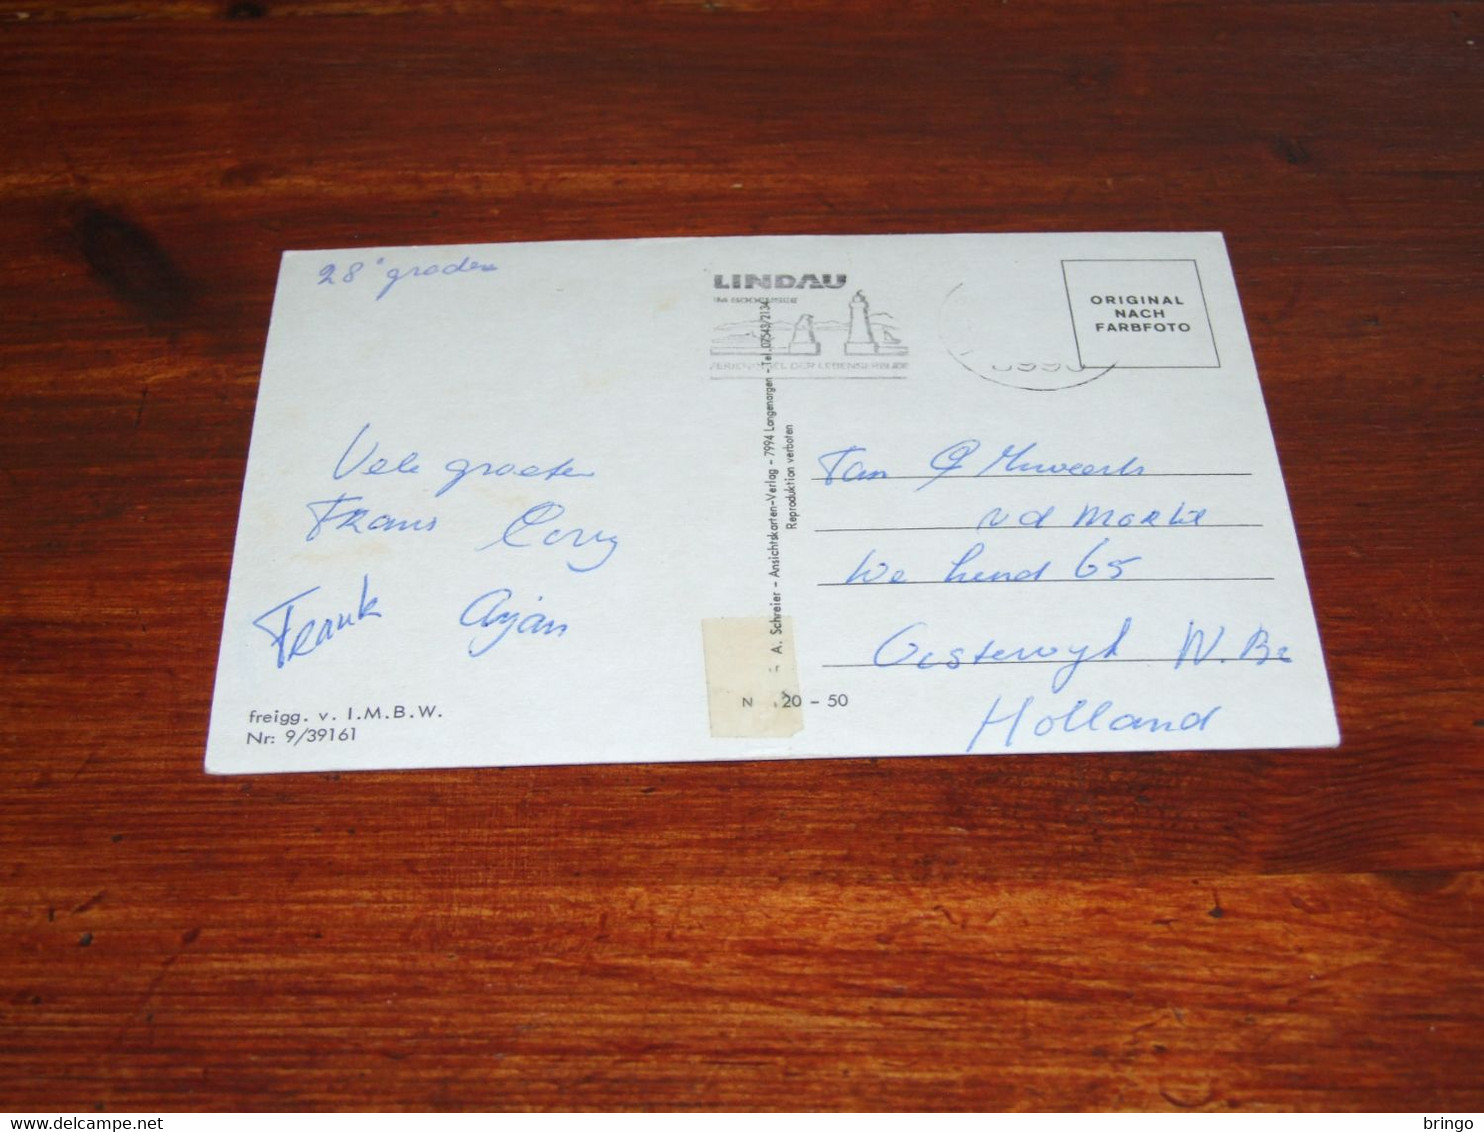 28° graden
LINDAU
IM BODENSEE
FERIENINSEL DER LEBENSFREUDE
ORIGINAL
NACH
FARBFOTO
Vele groeten
Frans Corry
Frank Arjan
freigg. v. I.M.B.W.
Nr: 9/39161
A. Schreier - Ansichtskarten-Verlag - 7994 Langenargen - Tel. 07543/2134
Reproduktion verboten
N 20 - 50
Fam
vd
65
Oesterwyk N.Br
Holland
www.delcampe.net
bringo